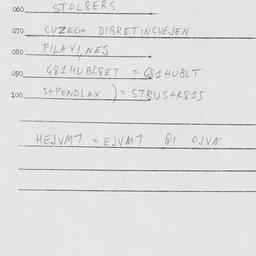 060 STOLBERS
070 CUZECH DIBRETINCVEJEN
080 PILAVI, NES
090 G81HUBLSET = G81HUBLT
100 S+PENDLAX ) = STRUS+K81S
HEJVMT = EJVMT QI OJVN